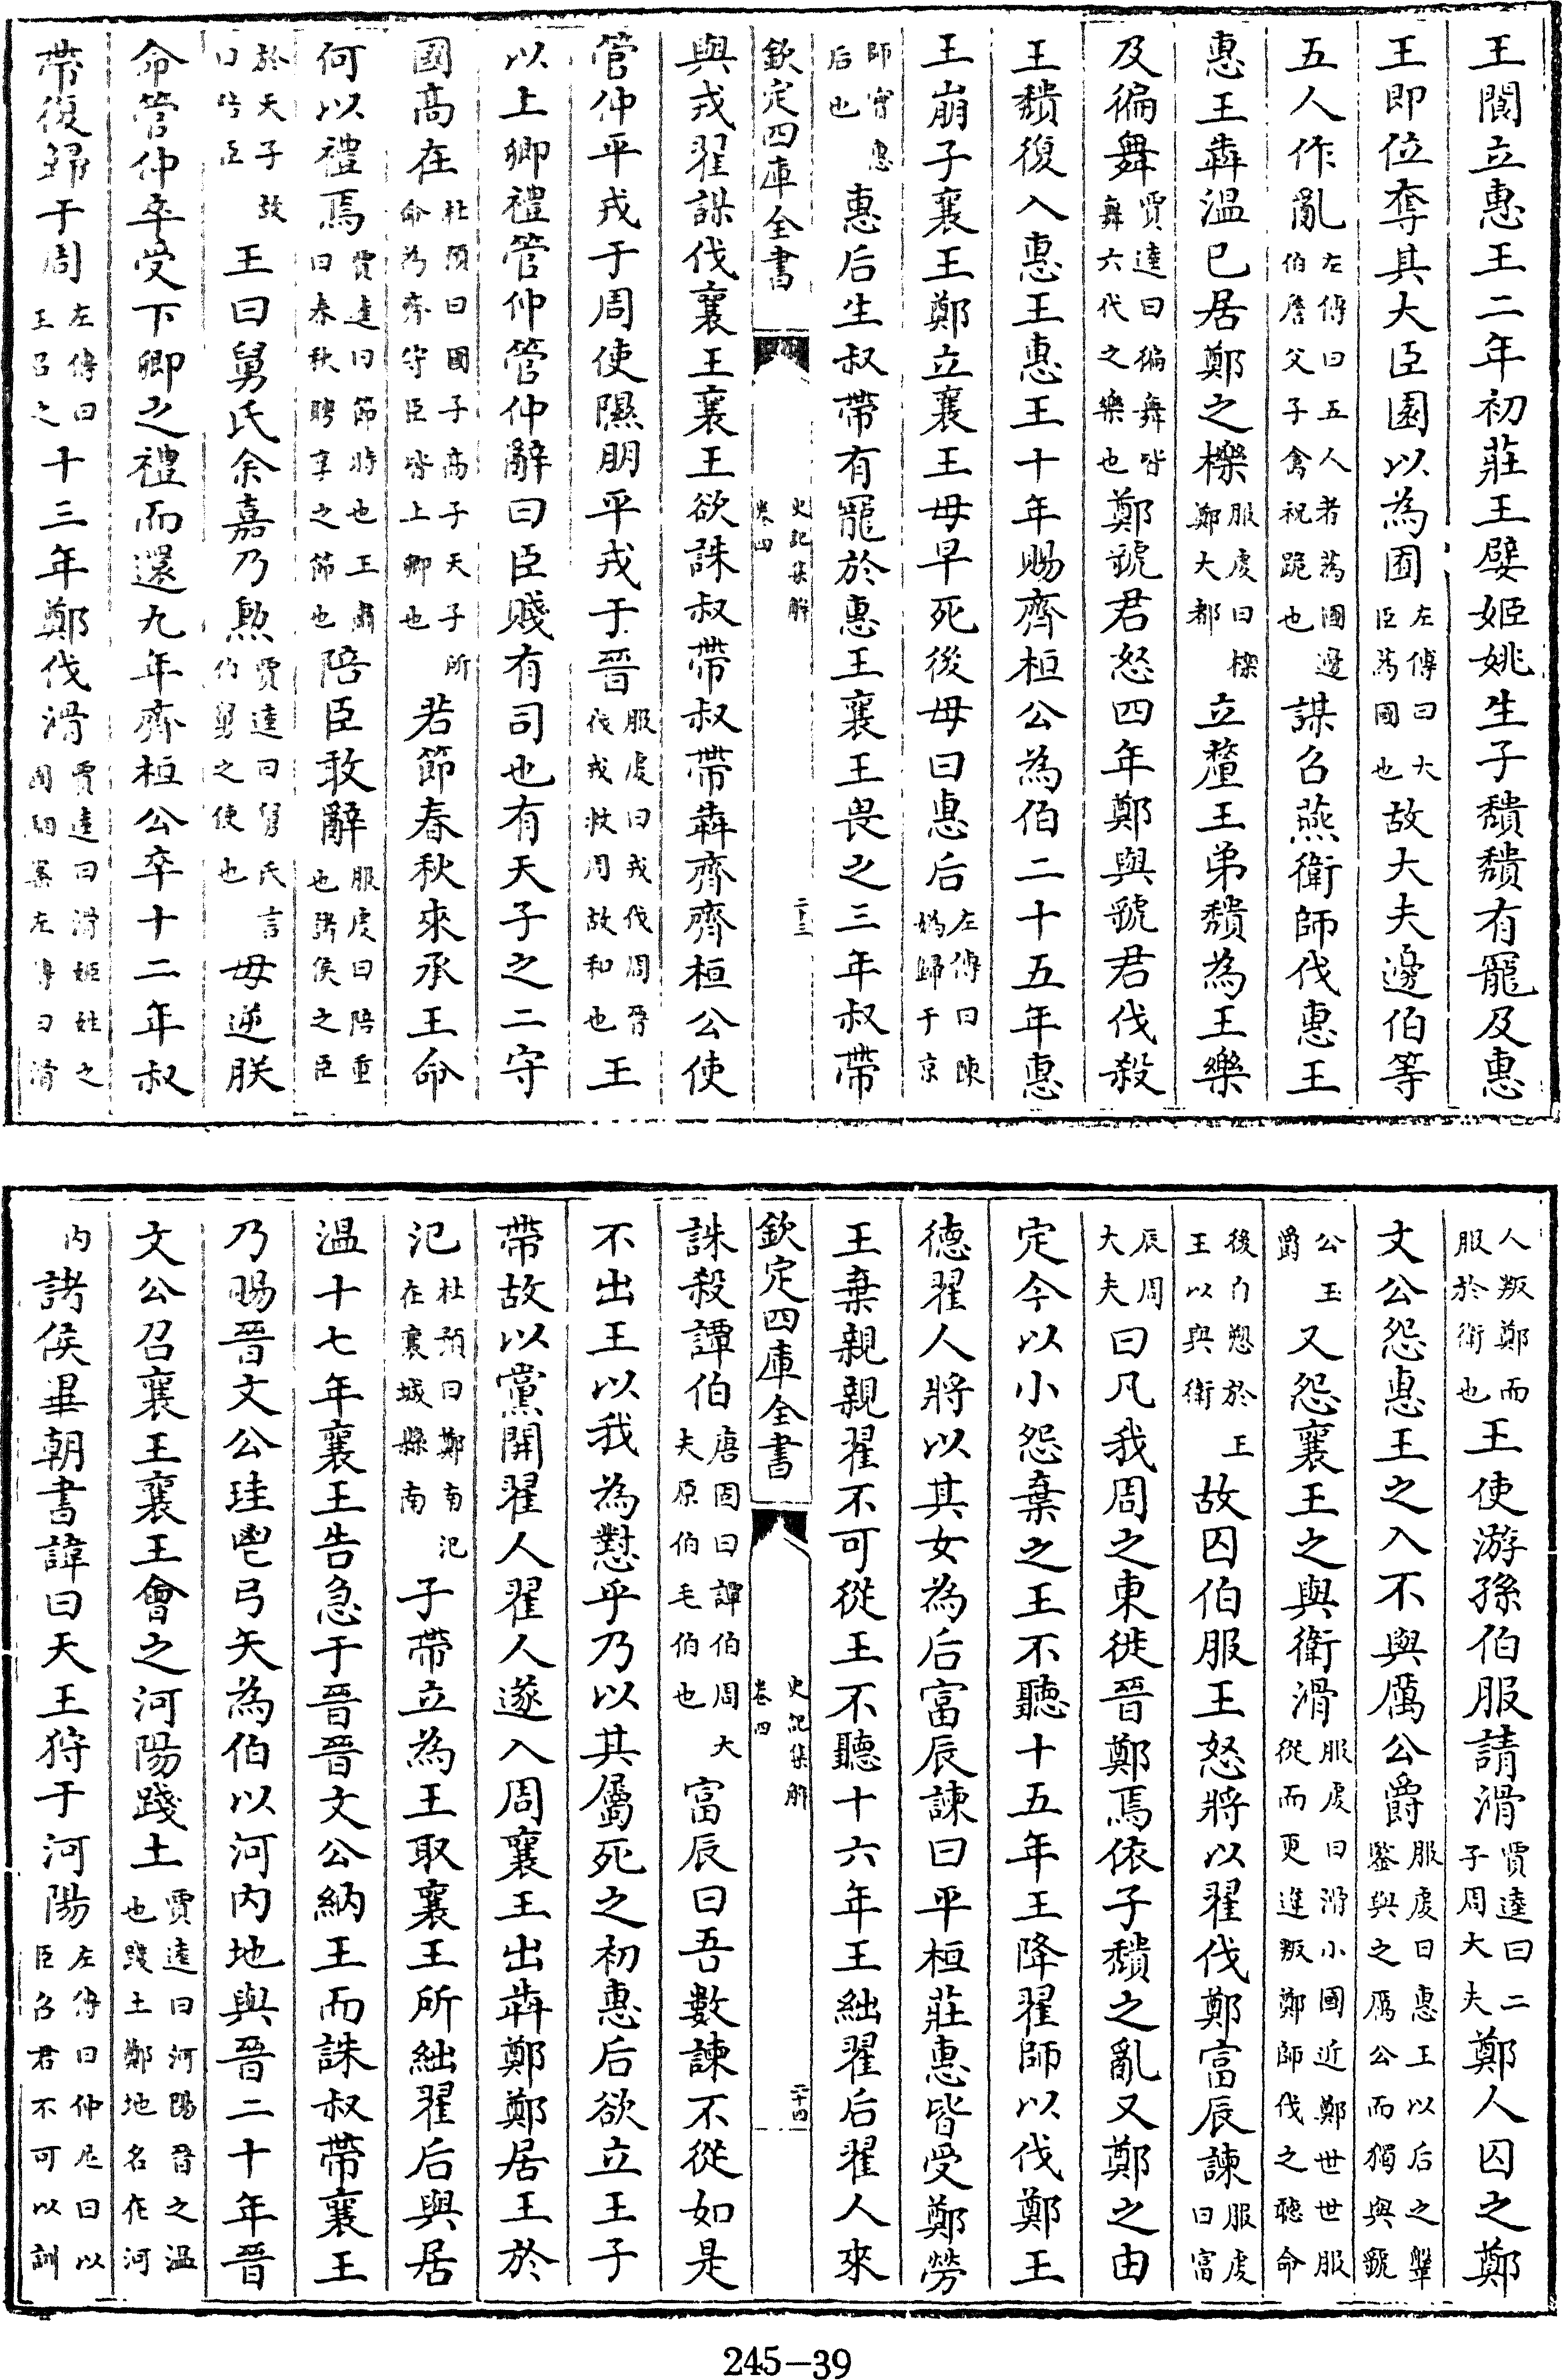 王閬立惠王二年初莊王嬖姬姚生子穨穨有寵及惠
王即位奪其大臣園以為囿左傳曰大臣蒍國也故大夫邊伯等
五人作亂左傳曰五人者蒍國邊伯詹父子禽祝跪也謀召燕衛師伐惠王
惠王犇溫已居鄭之櫟服虔曰櫟鄭大都立釐王弟穨為王樂
及徧舞賈逵曰徧舞皆舞六代之樂也鄭虢君怒四年鄭與虢君伐殺
王穨復入惠王惠王十年賜齊桓公為伯二十五年惠
王崩子襄王鄭立襄王母早死後母曰惠后左傳曰陳媯歸于京
師實惠后也惠后生叔帶有寵於惠王襄王畏之三年叔帶
欽定四庫全書 史記集解 卷四 二十三
與戎翟謀伐襄王襄王欲誅叔帶叔帶犇齊齊桓公使
管仲平戎于周使隰朋平戎于晉服虔曰戎伐周晉伐戎救周故和也王
以上卿禮管仲管仲辭曰臣賤有司也有天子之二守
國髙在杜預曰國子高子天子所命為齊守臣皆上卿也若節春秋來承王命
何以禮焉賈逵曰節時也王肅曰春秋聘享之節也陪臣敢辭服虔曰陪重也諸侯之臣
於天子故曰陪臣王曰舅氏余嘉乃勲賈逵曰舅氏言伯舅之使也毋逆朕
命管仲卒受下卿之禮而還九年齊桓公卒十二年叔
帶復歸于周左傳曰王召之十三年鄭伐滑賈逵曰滑姬姓之國駰案左傳曰滑
人叛鄭而服於衛也王使游孫伯服請滑賈逵曰二子周大夫鄭人囚之鄭
文公怨惠王之入不與厲公爵服虔曰惠王以后之鞶鑒與之厲公而獨與虢
公玉爵又怨襄王之與衛滑服虔曰滑小國近鄭世世服從而更違叛鄭師伐之聽命
後自愬於王王以與衛故囚伯服王怒將以翟伐鄭富辰諫服虔曰富
辰周大夫曰凡我周之東徙晉鄭焉依子穨之亂又鄭之由
定今以小怨棄之王不聽十五年王降翟師以伐鄭王
德翟人將以其女為后富辰諫曰平桓莊惠皆受鄭勞
王棄親親翟不可從王不聽十六年王絀翟后翟人來
欽定四庫全書 史記集解 卷四 二十四
誅殺譚伯唐固曰譚伯周大夫原伯毛伯也富辰曰吾數諫不從如是
不出王以我為懟乎乃以其屬死之初惠后欲立王子
帶故以黨開翟人翟人遂入周襄王出犇鄭鄭居王於
氾杜預曰鄭南氾在襄城縣南子帶立為王取襄王所絀翟后與居
溫十七年襄王告急于晉晉文公納王而誅叔帶襄王
乃賜晉文公珪鬯弓矢為伯以河內地與晉二十年晉
文公召襄王襄王會之河陽踐土賈逵曰河陽晉之溫也踐土鄭地名在河
內諸侯畢朝書諱曰天王狩于河陽左傳曰仲尼曰以臣召君不可以訓
245-39